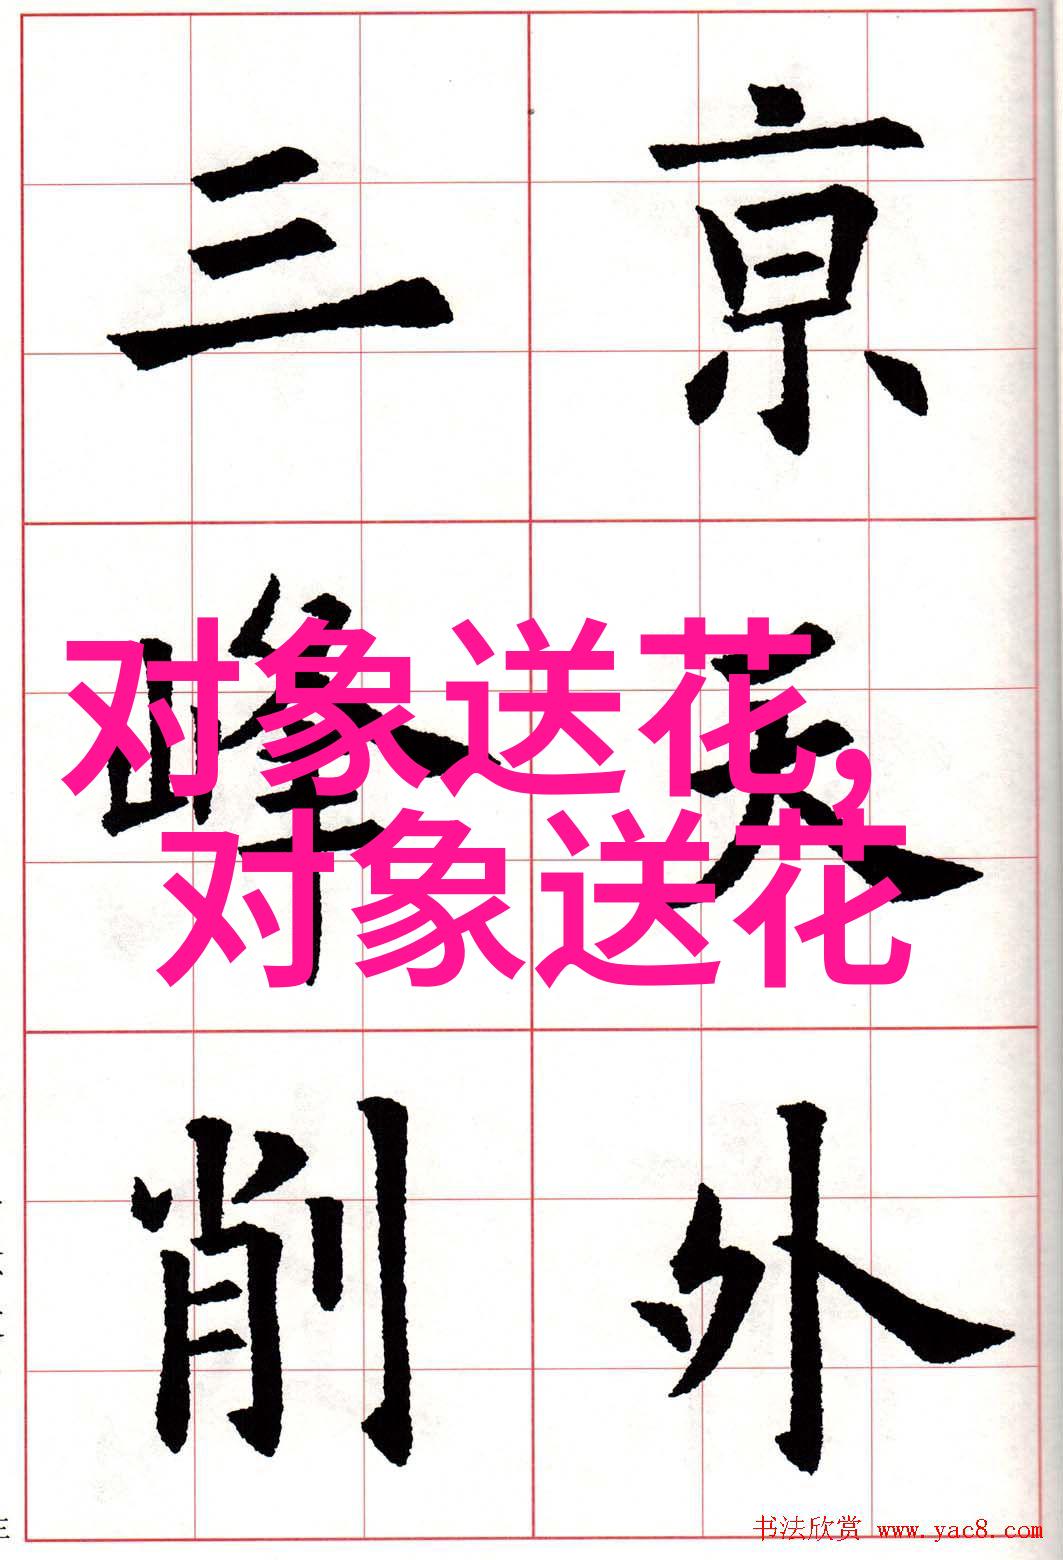 亰天外
三峰削
对象送花，
对象送花
书法欣赏 www.yac8.com